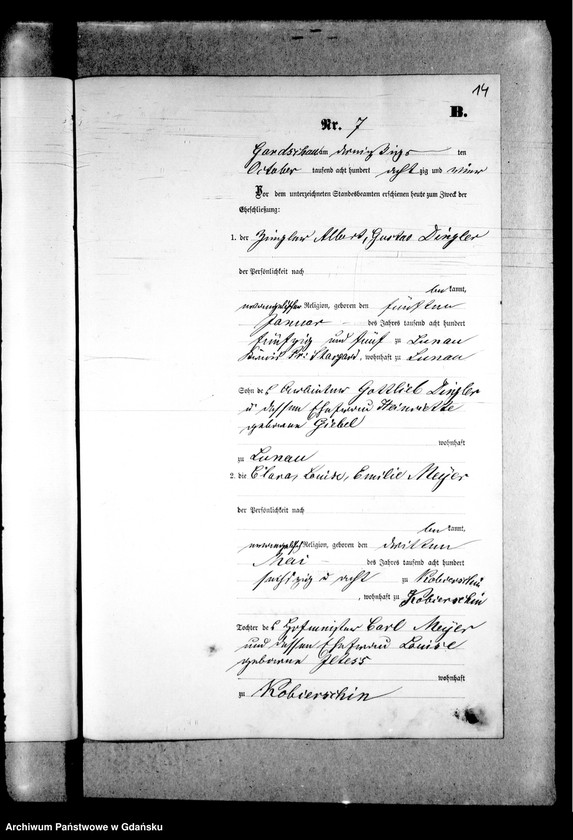 14
B.
Nr. 7
am dreißigsten
October tausend acht hundert achtzig und
Vor dem unterzeichneten Standesbeamten erschienen heute zum Zweck der
Eheschließung:
1. der Ziegler Albert, Gustav Dingler
der Persönlichkeit nach
bekannt,
evangelischer Religion, geboren den fünften
Januar des Jahres tausend acht hundert
fünfzig und fünf zu Lunau
Kreis Pr. Stargard, wohnhaft zu Lunau
Sohn des Arbeiter Gottlieb Dingler
u dessen Ehefrau Heinriette
geborene Giebel
wohnhaft
zu Lunau
2. die Clara, Louise, Emilie Meyer
der Persönlichkeit nach
bekannt,
evangelischer Religion, geboren den dritten
Mai des Jahres tausend acht hundert
sechszig u acht zu Kobierschin
, wohnhaft zu Kobierschin
Tochter des Hofmeister Carl Meyer
und dessen Ehefrau Louise
geborene
wohnhaft
zu Kobierschin
Archiwum Państwowe w Gdańsku